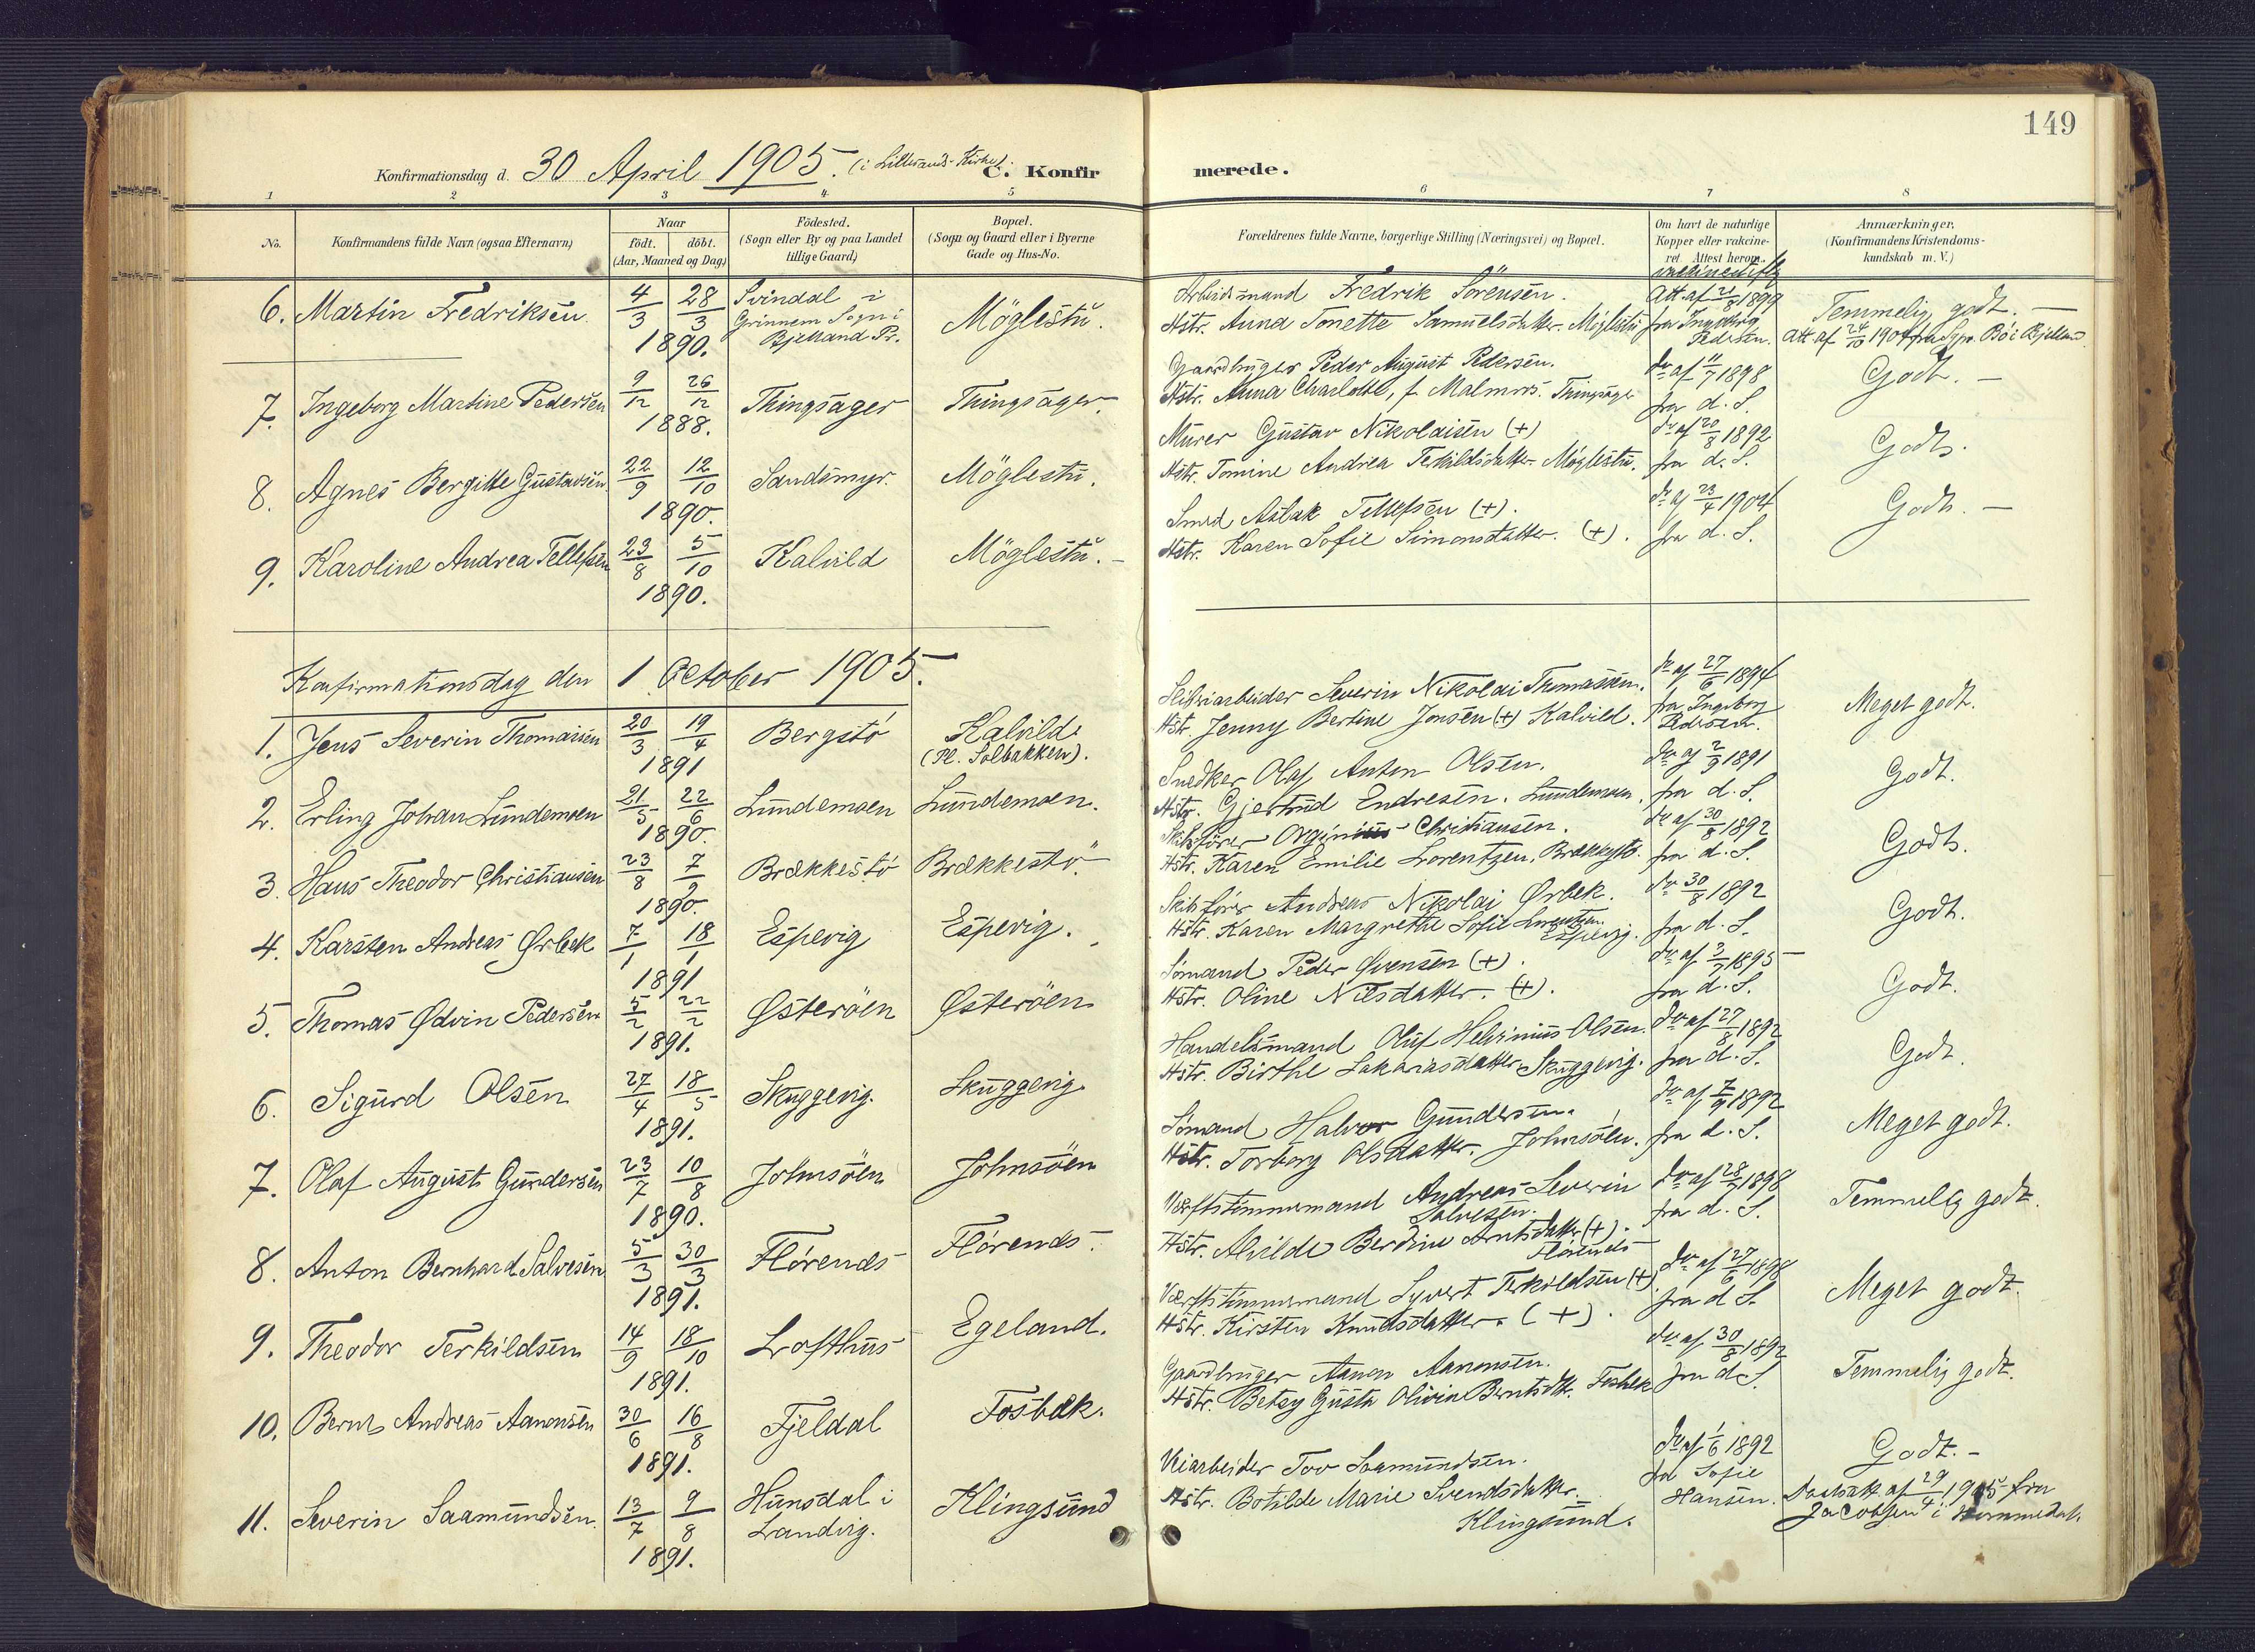 149
Konfirmationsdag d. 30 April 1905. (i Lillesands Kirke). C. Konfirmerede.
1 2 3 4. 5 6 7 8
No.
Konfirmandens fulde Navn (ogsaa Efternavn)
Naar
födt. döbt.
(Aar, Maaned og Dag)
Födested.
(Sogn eller By og paa Landet
tillige Gaard)
Bopæl.
(Sogn og Gaard eller i Byerne
Gade og Hus-No.
Forældrenes fulde Navne, borgerlige Stilling (Næringsvei) og Bopæl.
Om havt de naturlige
Kopper eller vakcine-
ret. Attest herom.
Anmærkninger.
(Konfirmandens Kristendoms-
kundskab m. V.)
6. Martin Fredriksen 4/3 28/3 1890. Svindal i
Grinnem Sogn i
Bjelland Pr.
Möglestu.
Arbeidsmand Fredrik Sörensen.
Hstr. Anna Tonette Samuelsdatter. Möglestu
Att. af 21/8 1899
fra Ingeborg
Pedersen.
Temmelig godt. —
Att. af 24/10 1904 fra Spr. Bö i Bjelland
7. Ingeborg Martine Pedersen 9/12 26/12 1888. Thingsager Thingsager.
Gaardbruger Peder August Pedersen.
Hstr. Anna Charlotte, f. Malmros. Thingsager
do af 11/7 1898
fra d. S.
Godt. —
8. Agnes Bergitte Gustavsen 22/9 12/10 1890. Sandsmyr. Möglestu.
Murer Gustav Nikolaisen (+)
Hstr. Tomine Andrea Terkildsdatter. Möglestu.
do af 20/8 1892
fra d. S.
Godt.
9. Karoline Andrea Tellefsen 23/8 5/10 1890. Kalvild Möglestu. —
Smed Aslak Tellefsen (+).
Hstr. Karen Sofie Simonsdatter. (+).
do af 23/4 1904
fra d. S.
Godt. —
Konfirmationsdag den 1 October 1905.
1. Jens Severin Thomassen 20/3 19/4 1891 Bergstö Kalvild
(Pl. Solbakken).
Severin Nikolai Thomassen.
Hstr. Jenny Bertine Jensen (+) Kalvild.
do af 27/6 1894
fra Ingeborg
Pedersen.
Meget godt.
2. Erling Johan Lundemoen 21/5 22/6 1890. Lundemoen Lundemoen.
Snedker Olaf Anton Olsen.
Hstr. Gjertrud Endresen. Lundemoen.
do af 2/9 1891
fra d. S.
Godt.
3. Hans Theodor Christiansen 23/8 7/9 1890. Brækkestö Brækkestö.
Skibsförer Christiansen.
Hstr. Karen Emilie Lorentzen. Brækkestö.
do af 30/8 1892
fra d. S.
Godt.
4. Karsten Andreas Ørbek 7/1 18/1 1891 Espevig Espevig.
Skibsförer Andreas Nikolai Ørbek.
Hstr. Karen Margrethe Sofie Lorentzen.
Espevig.
do 30/8 1892
fra d. S.
Godt.
5. Thomas Ødvin Pedersen 5/2 22/2 1891. Østeröen Østeröen
Sömand Peder Øvensen (+).
Hstr. Oline Nilsdatter. (+).
do af 2/7 1895 —
fra d. S.
Godt.
6. Sigurd Olsen 27/4 18/5 1891. Skuggevig. Skuggevig
Handelsmand Oluf Helvinius Olsen.
Hstr. Birthe Sakariasdatter Skuggevig.
do af 27/8 1892
fra d. S.
Godt.
7. Olaf August Gundersen 23/7 10/8 1890. Johnsöen Johnsöen
Sömand Halvor Gundersen.
Hstr. Torborg Olsdatter. Johnsöen.
do af 7/9 1892
fra d. S.
Meget godt.
8. Anton Bernhard Salvesen 5/3 30/3 1891. Flörenes Flörenes.
Værftstömmermand Andreas Severin
Salvesen.
Hstr. Alvilde Berdine Arntsdatter (+).
Flörenes
do af 28/7 1898
fra d. S.
Temmelig godt.
9. Theodor Terkildsen 14/9 18/10 1891. Lofthus Egeland.
Værftstömmermand Syvert Terkildsen (+)
Hstr. Kirsten Knudsdatter. (+).
do af 27/6 1898
fra d. S.
Meget godt.
10. Bernt Andreas Aanonsen 30/6 16/8 1891. Fjeldal Fosbæk.
Gaardbruger Aanon Aanonsen.
Hstr. Betsy Gusta Olivia Berntsdtr. Fosbæk
do af 30/8 1892
fra d. S.
Temmelig godt.
11. Severin Saamundsen. 13/7 9/8 1891. Hunsdal i
Landvig.
Klingsund
Veiarbeider Tov Saamundsen.
Hstr. Botilde Marie Svendsdatter.
Klingsund.
do af 1/6 1892
fra Sofie
Hansen.
Godt. —
Daabsatt. af 29/4 1905 fra
Jacobsen i Hommedal.